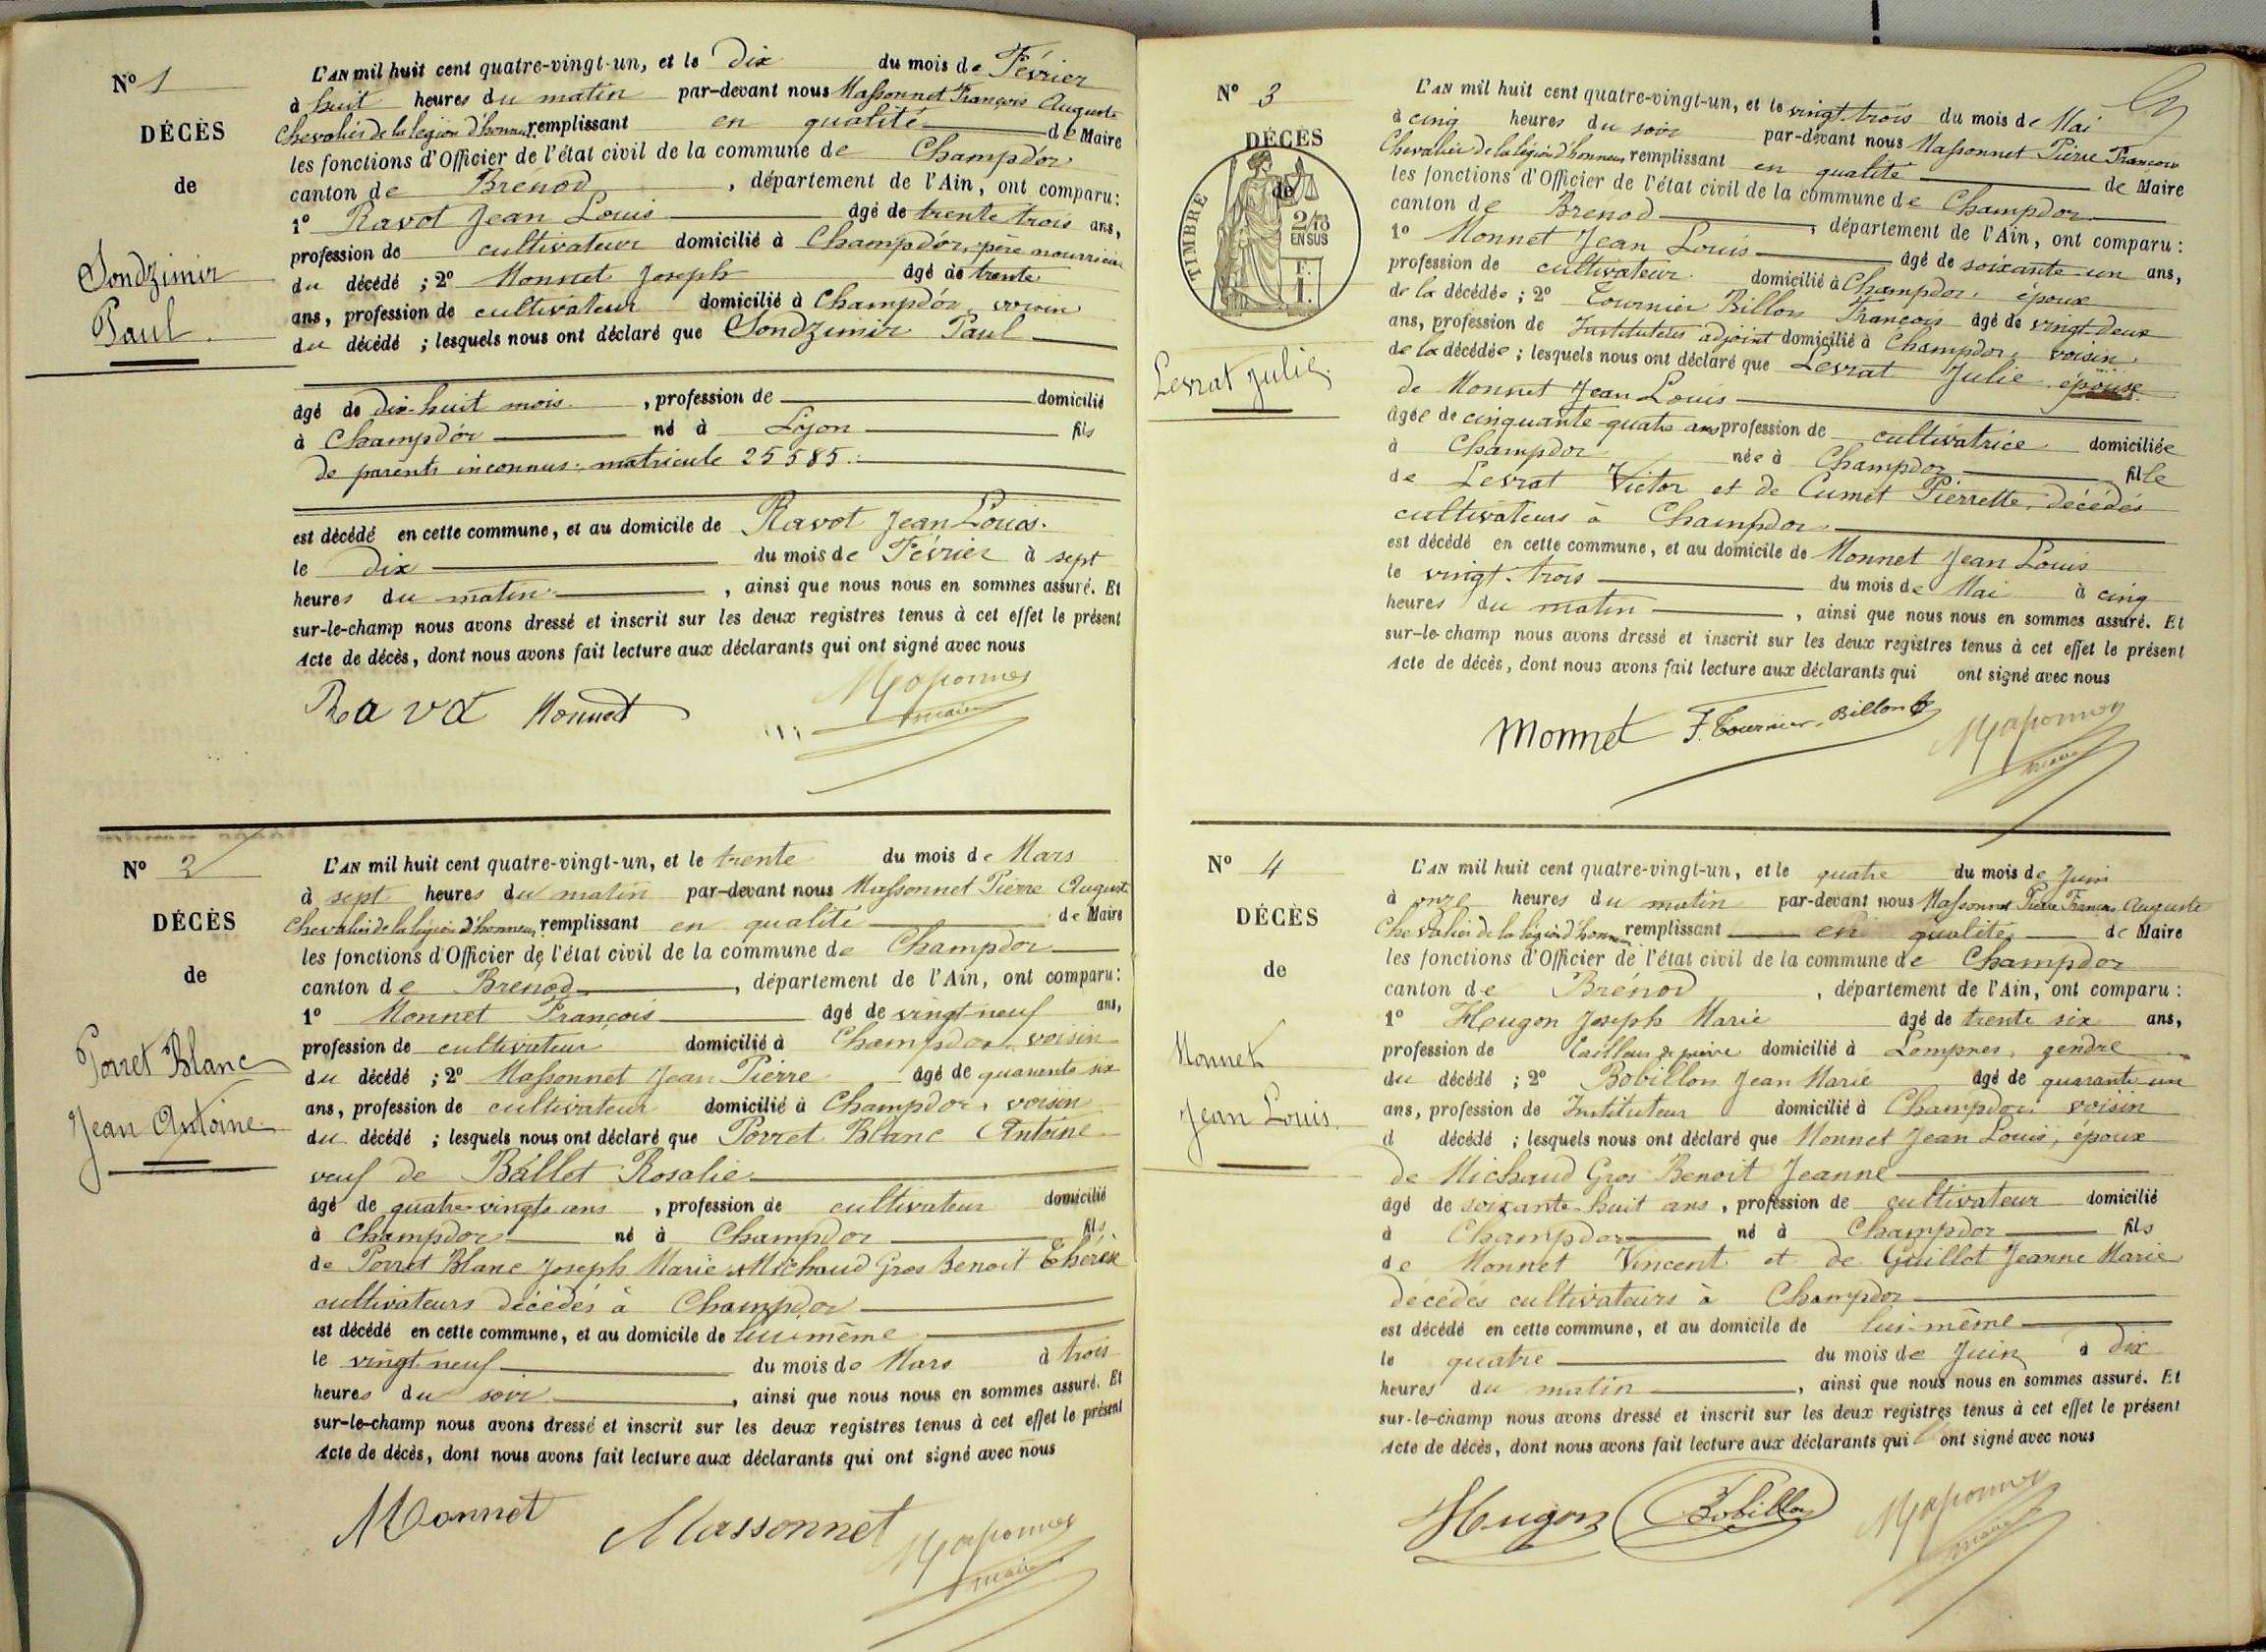 N° 1
DÉCÈS
de
Sondzimir
Paul
L'AN mil huit cent quatre-vingt-un, et le dix du mois de Février
à huit heures du matin par-devant nous Massonnet François Auguste
Chevalier de la légion d'honneur remplissant en qualité de Maire
les fonctions d'Officier de l'état civil de la commune de Champdor
canton de Brénod, département de l'Ain, ont comparu:
1° Ravot Jean Louis âgé de trente trois ans,
profession de cultivateur domicilié à Champdor, père nourricier
du décédé ; 2° Monnet Joseph âgé de trente
ans, profession de cultivateur domicilié à Champdor voisin
du décédé ; lesquels nous ont déclaré que Sondzimir Paul
âgé de dix-huit mois, profession de domicilié
à Champdor né à Lyon fils
de parents inconnus: matricule 25585.
est décédé en cette commune, et au domicile de Ravot Jean Louis.
le dix du mois de Février à sept
heures du matin, ainsi que nous nous en sommes assuré. Et
sur-le-champ nous avons dressé et inscrit sur les deux registres tenus à cet effet le présent
Acte de décès, dont nous avons fait lecture aux déclarants qui ont signé avec nous
Ravot Monnet Massonnet
maire
N° 2
DÉCÈS
de
Porret Blanc
Jean Antoine
L'AN mil huit cent quatre-vingt-un, et le trente du mois de Mars
à sept heures du matin par-devant nous Massonnet Pierre Auguste
Chevalier de la légion d'honneur remplissant en qualité de Maire
les fonctions d'Officier de l'état civil de la commune de Champdor
canton de Brenod, département de l'Ain, ont comparu:
1° Monnet François âgé de vingt-neuf ans,
profession de cultivateur domicilié à Champdor voisin
du décédé ; 2° Massonnet Jean Pierre âgé de quarante six
ans, profession de cultivateur domicilié à Champdor, voisin
du décédé ; lesquels nous ont déclaré que Porret Blanc Antoine
veuf de Ballet Rosalie
âgé de quatre-vingts ans, profession de cultivateur domicilié
à Champdor né à Champdor fils
de Porret Blanc Joseph Marie & Michaud Gros Benoit Thérèse
cultivateurs décédés à Champdor
est décédé en cette commune, et au domicile de lui-même
le vingt-neuf du mois de Mars à trois
heures du soir, ainsi que nous nous en sommes assuré. Et
sur-le-champ nous avons dressé et inscrit sur les deux registres tenus à cet effet le présent
Acte de décès, dont nous avons fait lecture aux déclarants qui ont signé avec nous
Monnet Massonnet Massonnet
maire
N° 3
DÉCÈS
de
TIMBRE
2/10
EN SUS
F.
1.
Levrat Julie.
L'AN mil huit cent quatre-vingt-un, et le vingt-trois du mois de Mai
à cinq heures du soir par-devant nous Massonnet Pierre François
Chevalier de la légion d'honneur remplissant en qualité de Maire
les fonctions d'Officier de l'état civil de la commune de Champdor
canton de Brenod, département de l'Ain, ont comparu:
1° Monnet Jean Louis âgé de soixante-un ans,
profession de cultivateur domicilié à Champdor, époux
de la décédée ; 2° Tournier Billon François âgé de vingt-deux
ans, profession de Instituteur adjoint domicilié à Champdor, voisin
de la décédée ; lesquels nous ont déclaré que Levrat Julie épouse
de Monnet Jean Louis
âgée de cinquante-quatre ans profession de cultivatrice domiciliée
à Champdor née à Champdor fille
de Levrat Victor et de Cumet Pierrette, décédés
cultivateurs à Champdor
est décédé en cette commune, et au domicile de Monnet Jean Louis
le vingt-trois du mois de Mai à cinq
heures du matin, ainsi que nous nous en sommes assuré. Et
sur-le-champ nous avons dressé et inscrit sur les deux registres tenus à cet effet le présent
Acte de décès, dont nous avons fait lecture aux déclarants qui ont signé avec nous
Monnet F. Tournier-Billon Massonnet
maire
N° 4
DÉCÈS
de
Monnet
Jean Louis.
L'AN mil huit cent quatre-vingt-un, et le quatre du mois de Juin
à onze heures du matin par-devant nous Massonnet Pierre François Auguste
Chevalier de la légion d'honneur remplissant en qualité de Maire
les fonctions d'Officier de l'état civil de la commune de Champdor
canton de Brénod, département de l'Ain, ont comparu:
1° Hugon Joseph Marie âgé de trente six ans,
profession de tailleur de pierre domicilié à Lompnes, gendre
du décédé ; 2° Bobillon Jean Marie âgé de quarante un
ans, profession de Instituteur domicilié à Champdor voisin
d décédé ; lesquels nous ont déclaré que Monnet Jean Louis, époux
de Michaud Gros Benoit Jeanne
âgé de soixante-huit ans, profession de cultivateur domicilié
à Champdor né à Champdor fils
de Monnet Vincent et de Guillot Jeanne Marie
décédés cultivateurs à Champdor
est décédé en cette commune, et au domicile de lui-même
le quatre du mois de Juin à dix
heures du matin, ainsi que nous nous en sommes assuré. Et
sur-le-champ nous avons dressé et inscrit sur les deux registres tenus à cet effet le présent
Acte de décès, dont nous avons fait lecture aux déclarants qui ont signé avec nous
Hugon Bobillon Massonnet
maire